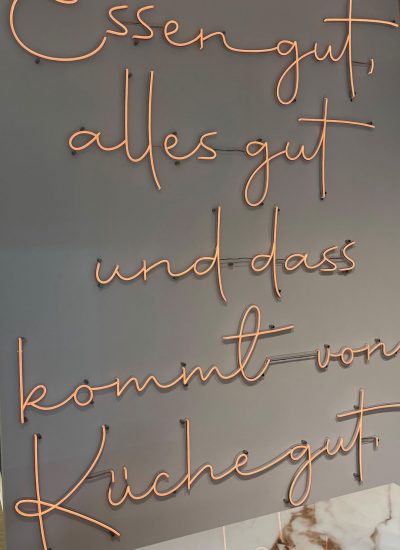 Essen gut,
alles gut
und dass
kommt von
Küchegut,